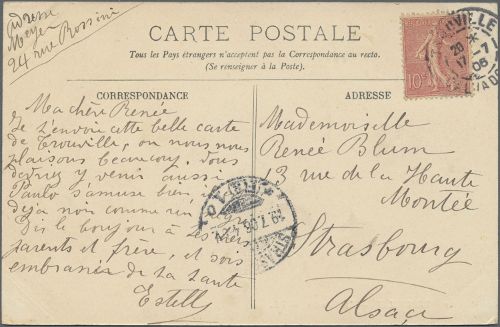 Adresse
Meyer
24 rue Rossini
CARTE POSTALE
Tous les Pays étrangers n'acceptent pas la Correspondance au recto.
(Se renseigner à la Poste.)
CORRESPONDANCE
Ma chère Renée
Je t'envoie cette belle carte
de Trouville, où nous nous
plaisons beaucoup. Vous
devriez y venir aussi
Paulo s'amuse bien,
déjà
Dis le bonjour à tes chers
parents et frère, et sois
embrassée de la tante
Estelle
ADRESSE
Mademoiselle
Renée Blum
13 rue de la Haute
Montée
Strasbourg
Alsace
10
20 * -7
17
06
19.7.06